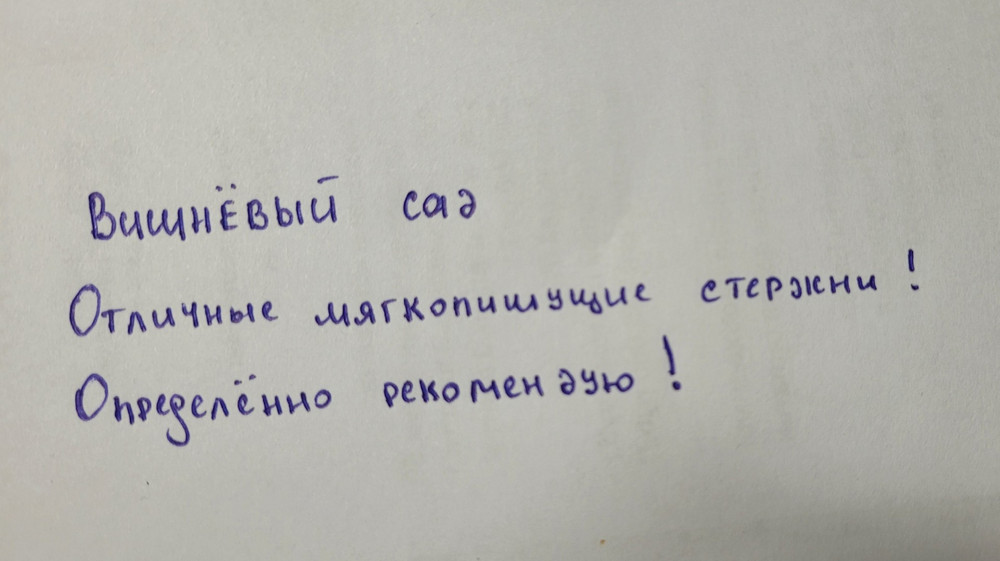 Вишнёвый сад
Отличные мягкопишущие стержни!
Определённо рекомендую!